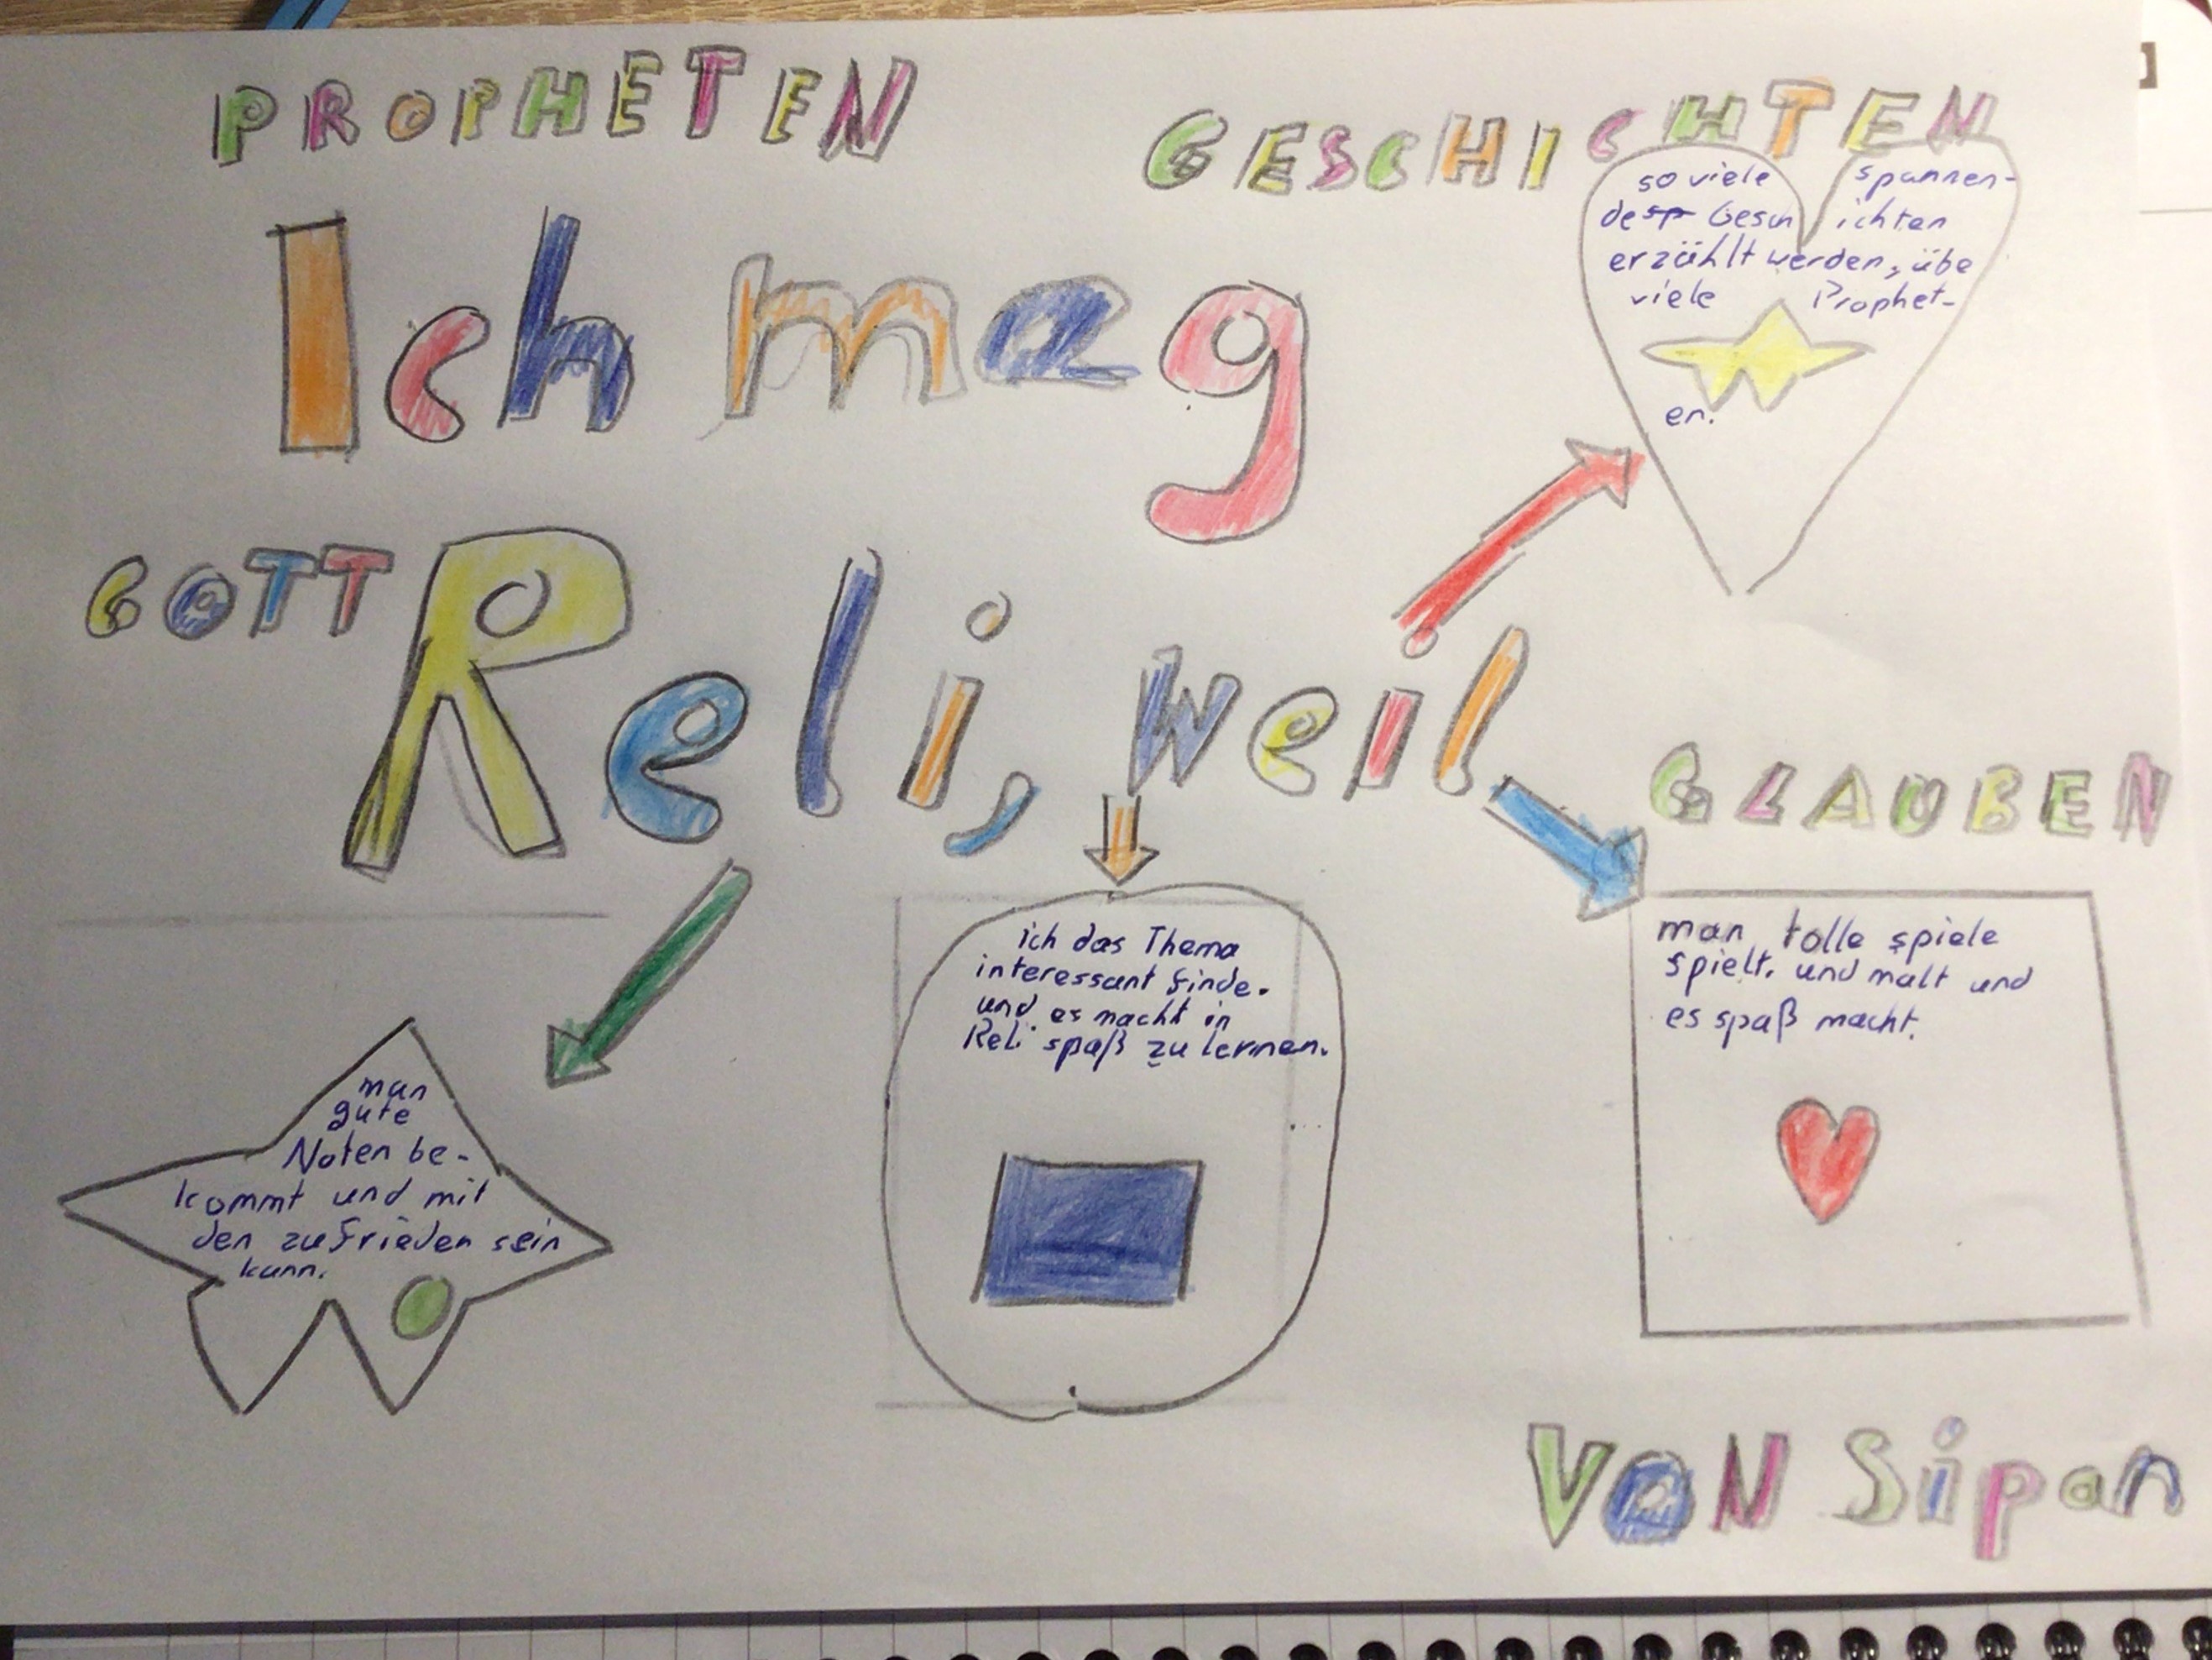 PROPHETEN
GESCHICHTEN
Ich mag
GOTT
Reli, weil
so viele spannen-
de sp Gesch ichten
erzählt werden, übe
viele Prophet-
en.
GLAUBEN
man gute
Noten be-
kommt und mit
den zufrieden sein
kann.
ich das Thema
interessant finde.
und es macht in
Reli spaß zu lernen.
man tolle spiele
spielt. und malt und
es spaß macht.
VON Sipan